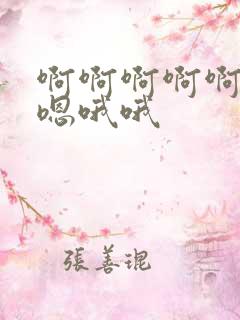 啊啊啊啊啊
嗯哦哦
張善琨